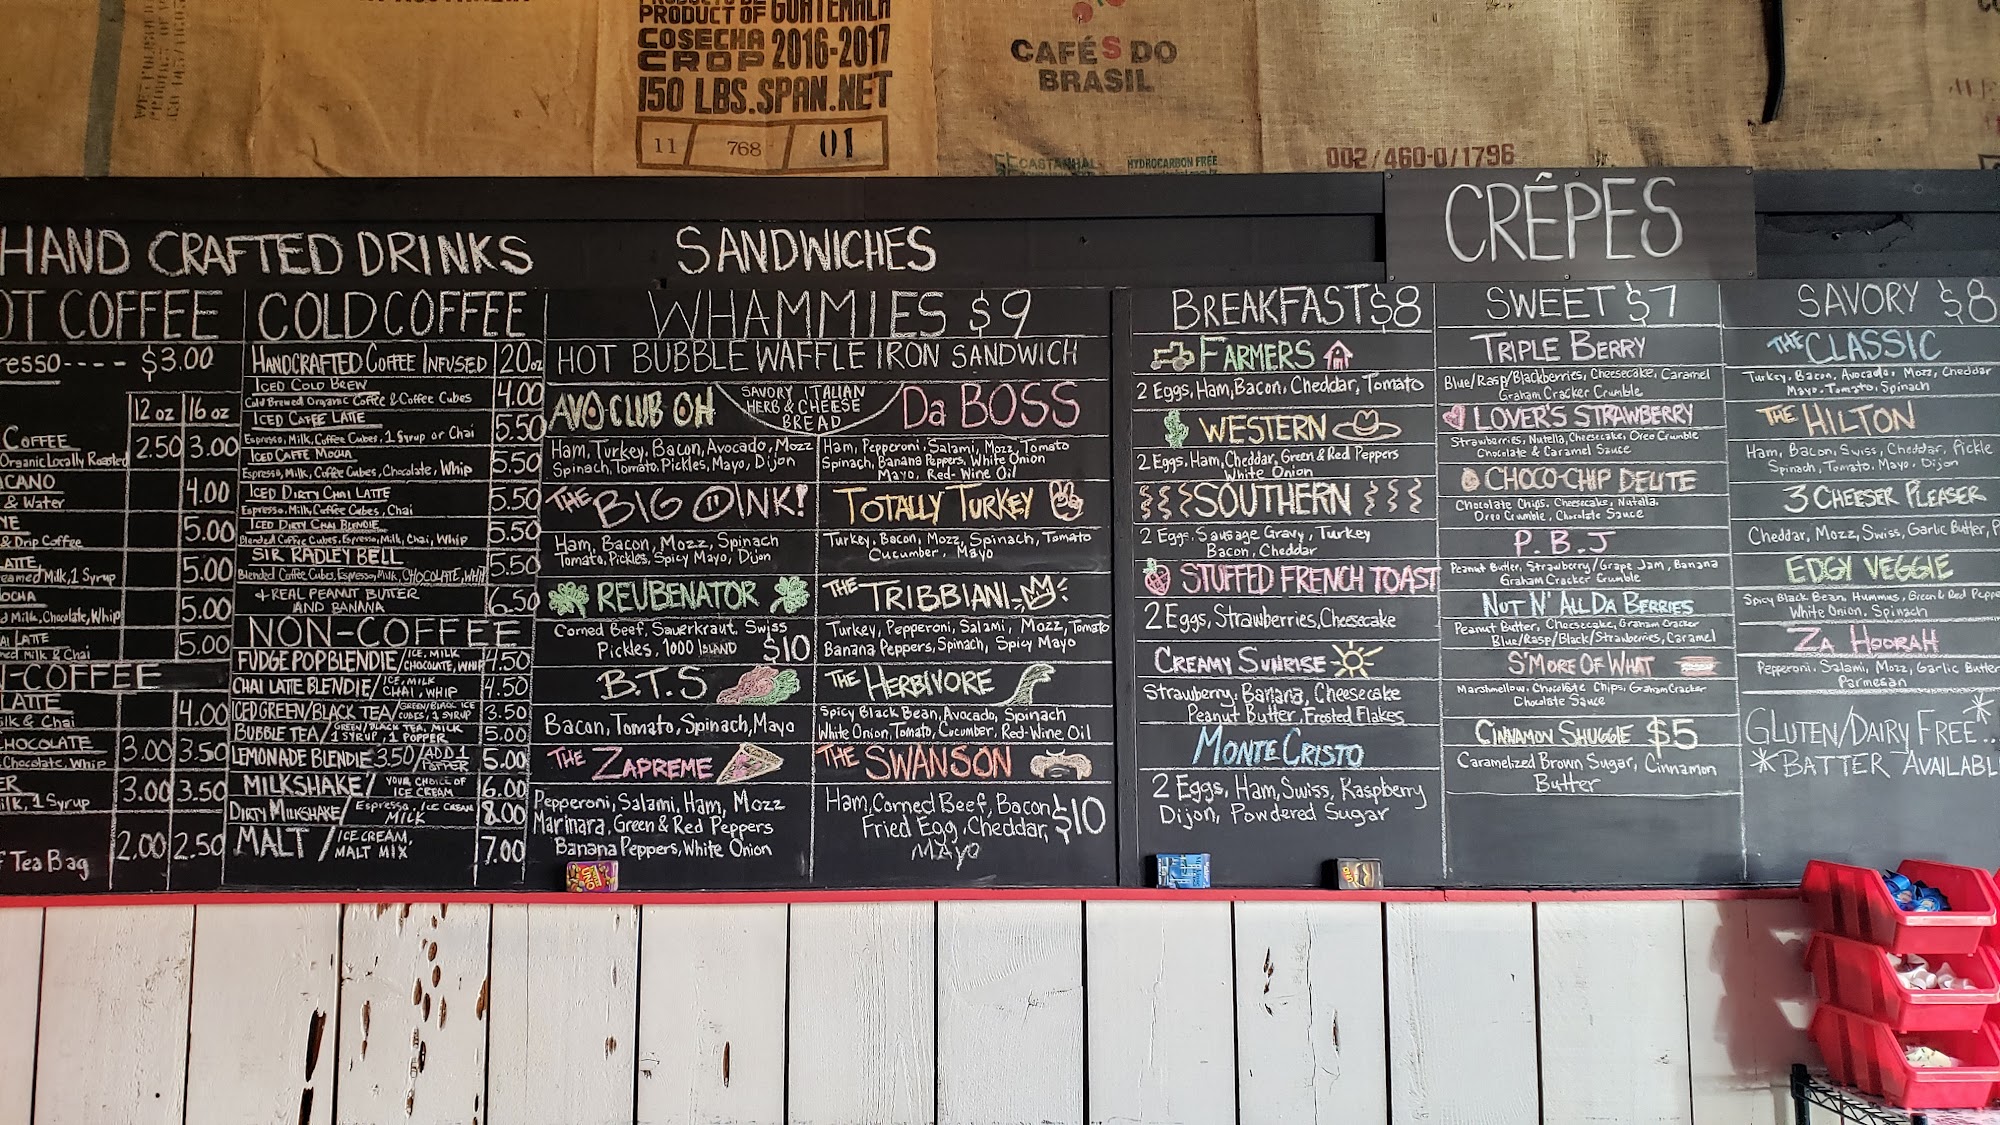 PRODUCT OF GUATEMALA
COSECHA 2016-2017
CROP
150 LBS.SPAN.NET
11 768 01
CAFÉS DO
BRASIL
CASTANHAL
HYDROCARBON FREE
002/460-0/1796
HAND CRAFTED DRINKS
OT COFFEE
resso---- $3.00
12 oz 16 oz
COFFEE 2.50 3.00
Organic Locally Roasted
CANO 4.00
& Water
YE 5.00
& Drip Coffee
ATTE 5.00
eamed Milk, 1 Syrup
OCHA 5.00
d Milk, Chocolate, Whip
AI LATTE 5.00
med Milk & Chai
N-COFFEE
LATTE 4.00
ilk & Chai
CHOCOLATE 3.00 3.50
Chocolate, Whip
ER 3.00 3.50
ilk, 1 Syrup
2.00 2.50
F Tea Bag
COLD COFFEE
HANDCRAFTED COFFEE INFUSED 20oz
ICED COLD BREW 4.00
Cold Brewed Organic Coffee & Coffee Cubes
ICED CAFFE LATTE 5.50
Espresso, Milk, Coffee Cubes, 1 Syrup or Chai
ICED CAFFE MOCHA 5.50
Espresso, Milk, Coffee Cubes, Chocolate, Whip
ICED DIRTY CHAI LATTE 5.50
Espresso, Milk, Coffee Cubes, Chai
ICED DIRTY CHAI BLENDIE 5.50
Blended Coffee Cubes, Espresso, Milk, Chai, Whip
SIR RADLEY BELL 5.50
Blended Coffee Cubes, Espresso, Milk, CHOCOLATE, WHIP
+ REAL PEANUT BUTTER AND BANANA 6.50
NON-COFFEE
FUDGE POP BLENDIE/ICE, MILK, CHOCOLATE, WHIP 4.50
CHAI LATTE BLENDIE/ICE, MILK, CHAI, WHIP 4.50
ICED GREEN/BLACK TEA/GREEN/BLACK ICE CUBES, 1 SYRUP 3.50
BUBBLE TEA/GREEN/BLACK TEA, MILK, 1 SYRUP, 1 POPPER 5.00
LEMONADE BLENDIE 3.50/ADD 1 POPPER 5.00
MILKSHAKE/YOUR CHOICE OF ICE CREAM 6.00
DIRTY MILKSHAKE/Espresso, ICE CREAM MILK 8.00
MALT/ICE CREAM, MALT MIX 7.00
SANDWICHES
WHAMMIES $9
HOT BUBBLE WAFFLE IRON SANDWICH
SAVORY ITALIAN
HERB & CHEESE
BREAD
AVO CLUB OH
Ham, Turkey, Bacon, Avocado, Mozz
Spinach, Tomato, Pickles, Mayo, Dijon
THE BIG OINK!
Ham, Bacon, Mozz, Spinach
Tomato, Pickles, Spicy Mayo, Dijon
REUBENATOR
Corned Beef, Sauerkraut, Swiss
Pickles, 1000 ISLAND $10
B.T.S
Bacon, Tomato, Spinach, Mayo
THE ZAPREME
Pepperoni, Salami, Ham, Mozz
Marinara, Green & Red Peppers
Banana Peppers, White Onion
Da BOSS
Ham, Pepperoni, Salami, Mozz, Tomato
Spinach, Banana Peppers, White Onion
Mayo, Red-Wine Oil
TOTALLY TURKEY
Turkey, Bacon, Mozz, Spinach, Tomato
Cucumber, Mayo
THE TRIBBIANI
Turkey, Pepperoni, Salami, Mozz, Tomato
Banana Peppers, Spinach, Spicy Mayo
THE HERBIVORE
Spicy Black Bean, Avocado, Spinach
White Onion, Tomato, Cucumber, Red-Wine Oil
THE SWANSON
Ham, Corned Beef, Bacon
Fried Egg, Cheddar, $10
MAYO
UNO
CRÊPES
BREAKFAST $8
FARMERS
2 Eggs, Ham, Bacon, Cheddar, Tomato
WESTERN
2 Eggs, Ham, Cheddar, Green & Red Peppers
White Onion
SOUTHERN
2 Eggs, Sausage Gravy, Turkey
Bacon, Cheddar
STUFFED FRENCH TOAST
2 Eggs, Strawberries, Cheesecake
CREAMY SUNRISE
Strawberry, Banana, Cheesecake
Peanut Butter, Frosted Flakes
MONTE CRISTO
2 Eggs, Ham, Swiss, Raspberry
Dijon, Powdered Sugar
SWEET $7
TRIPLE BERRY
Blue/Rasp/Blackberries, Cheesecake, Caramel
Graham Cracker Crumble
LOVER'S STRAWBERRY
Strawberries, Nutella, Cheesecake, Oreo Crumble
Chocolate & Caramel Sauce
CHOCO-CHIP DELITE
Chocolate Chips, Cheesecake, Nutella,
Oreo Crumble, Chocolate Sauce
P.B.J
Peanut Butter, Strawberry/Grape Jam, Banana
Graham Cracker Crumble
NUT N' ALL DA BERRIES
Peanut Butter, Cheesecake, Graham Cracker
Blue/Rasp/Black/Strawberries, Caramel
S'MORE OF WHAT
Marshmellow, Chocolate Chips, Graham Cracker
Chocolate Sauce
CINNAMON SHUGGIE $5
Caramelized Brown Sugar, Cinnamon
Butter
SAVORY $8
THE CLASSIC
Turkey, Bacon, Avocado, Mozz, Cheddar
Mayo, Tomato, Spinach
THE HILTON
Ham, Bacon, Swiss, Cheddar, Pickle
Spinach, Tomato, Mayo, Dijon
3 CHEESER PLEASER
Cheddar, Mozz, Swiss, Garlic Butter, P
EDGY VEGGIE
Spicy Black Bean Hummus, Green & Red Peppe
White Onion, Spinach
ZA HOORAH
Pepperoni, Salami, Mozz, Garlic Butter
Parmesan
GLUTEN/DAIRY FREE..*
*BATTER AVAILABL